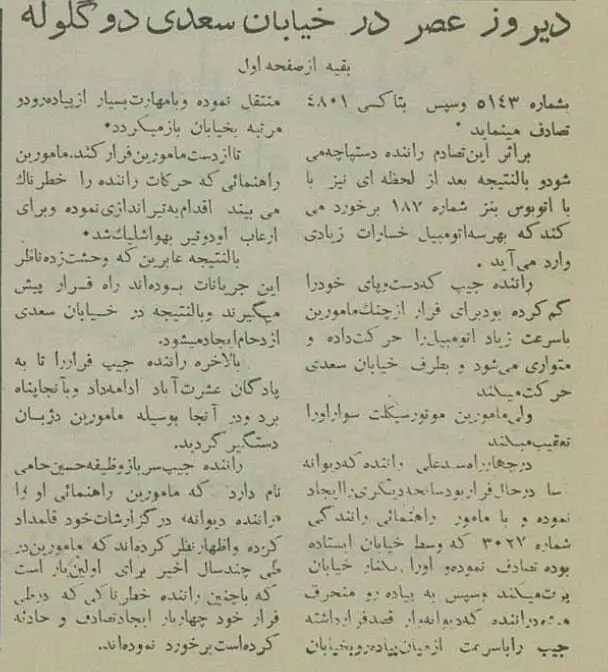 دیروز عصر در خیابان سعدی دو گلوله
بقیه از صفحه اول
بشماره ۵۱۴۳ وسپس بتاکسی ۴۸۰۱
تصادف مینماید .
براثر این تصادم راننده دستپاچه می
شود و بالنتیجه بعد از لحظه ای نیز با
با اتوبوس بنز شماره ۱۸۷ برخورد می
کند که بهر سه اتومبیل خسارات زیادی
وارد می آید .
راننده جیپ که دست و پای خود را
گم کرده بود برای فرار از چنك مامورین
باسرعت زیاد اتومبیل را حرکت داده و
متواری می شود و بطرف خیابان سعدی
حرکت میکند
ولی مامورین موتورسیکلت سوار اورا
تعقیب میکند
درچهارراه سیدعلی راننده که دیوانه
سا درحال فرار بود سانحه دیگری را ایجاد
نموده و با مامور راهنمائی رانندگی
شماره ۳۰۲۷ که وسط خیابان ایستاده
بوده تصادف نموده و اورا بکنار خیابان
پرت میکند وسپس به پیاده رو منحرف
راننده که دیوانه وار قصد فرار داشته
جیپ را باسرعت از میان پیاده رو بخیابان
منتقل نموده و با مهارت بسیار از پیاده رو دو
مرتبه بخیابان باز میگردد.
تا از دست مامورین فرار کند. مامورین
راهنمائی که حرکات راننده را خطرناك
می بینند اقدام به تیراندازی نموده وبرای
ارعاب او دو تیر بهوا شلیك شد.
بالنتیجه عابرین که وحشت زده ناظر
این جریانات بوده اند راه فرار پیش
میگیرند وبالنتیجه در خیابان سعدی
ازدحام ایجاد میشود.
بالاخره راننده جیپ فرار را تا به
پادگان عشرت آباد ادامه داد وبآنجا پناه
برد ودر آنجا بوسیله مامورین دژبان
دستگیر گردید.
راننده جیپ سرباز وظیفه حسین حامی
نام دارد که مامورین راهنمائی او را
«راننده دیوانه» در گزارشات خود قلمداد
کرده و اظهار نظر کرده اند که مامورین در
طی چند سال اخیر برای اولین بار است
که با چنین راننده خطرناکی که در طی
فرار خود چهار بار ایجاد تصادف و حادثه
کرده است برخورد نموده اند.